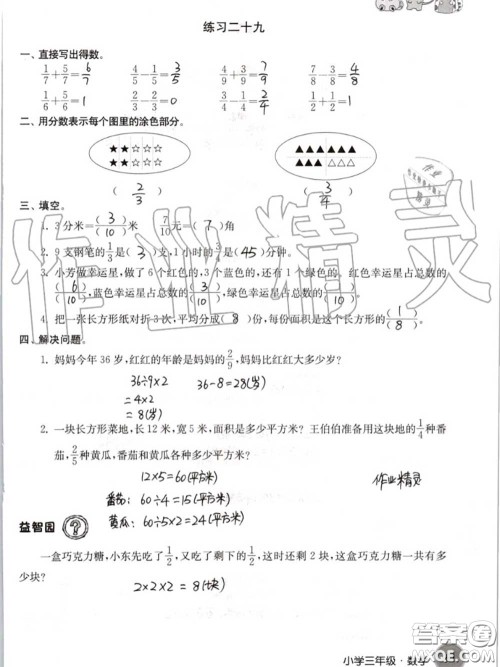 练习二十九
一、直接写出得数。
1/7+5/7=6/7 4/5-1/5=3/5 4/9+3/9=7/9 7/8-3/8=4/8
1/6+5/6=1 2/3-2/3=0 3/4-1/4=2/4 1/2+1/2=1
二、用分数表示每个图里的涂色部分。
★★☆☆☆ ▲▲▲▲▲▲
★★☆☆☆ ▲▲▲△△△
( 2/3 ) ( 3/4 )
三、填空。
1. 3分米=(3)/(10)米 7/10元=(7)角
2. 9支钢笔的1/3是(3)支,1小时的3/4是(45)分钟。
3. 小芳做幸运星,做了6个红色的,3个蓝色的,还有1个绿色的。红色幸运星占总数的
(6)/(10),蓝色幸运星占总数的(3)/(10),绿色幸运星占总数的(1)/(10)。
4. 把一张长方形纸对折3次,平均分成(8)份,每份是这个长方形的(1)/(8)。
四、解决问题。
1. 妈妈今年36岁,红红的年龄是妈妈的2/9,妈妈比红红大多少岁?
36÷9×2 36-8=28(岁)
=4×2
=8(岁)
2. 一块长方形菜地,长12米,宽5米,面积是多少平方米?王伯伯准备用这块地的1/4种番
茄,2/5种黄瓜,番茄和黄瓜各种多少平方米?
12×5=60(平方米)
番茄:60÷4=15(平方米)
黄瓜:60÷5×2=24(平方米)
作业精灵
益智园 ?
一盒巧克力糖,小东先吃了1/2,又吃了剩下的1/2,这时还剩2块,这盒巧克力糖一共有多
少块?
2×2×2=8(块)
小学三年级·数学
作业精灵
答案圈